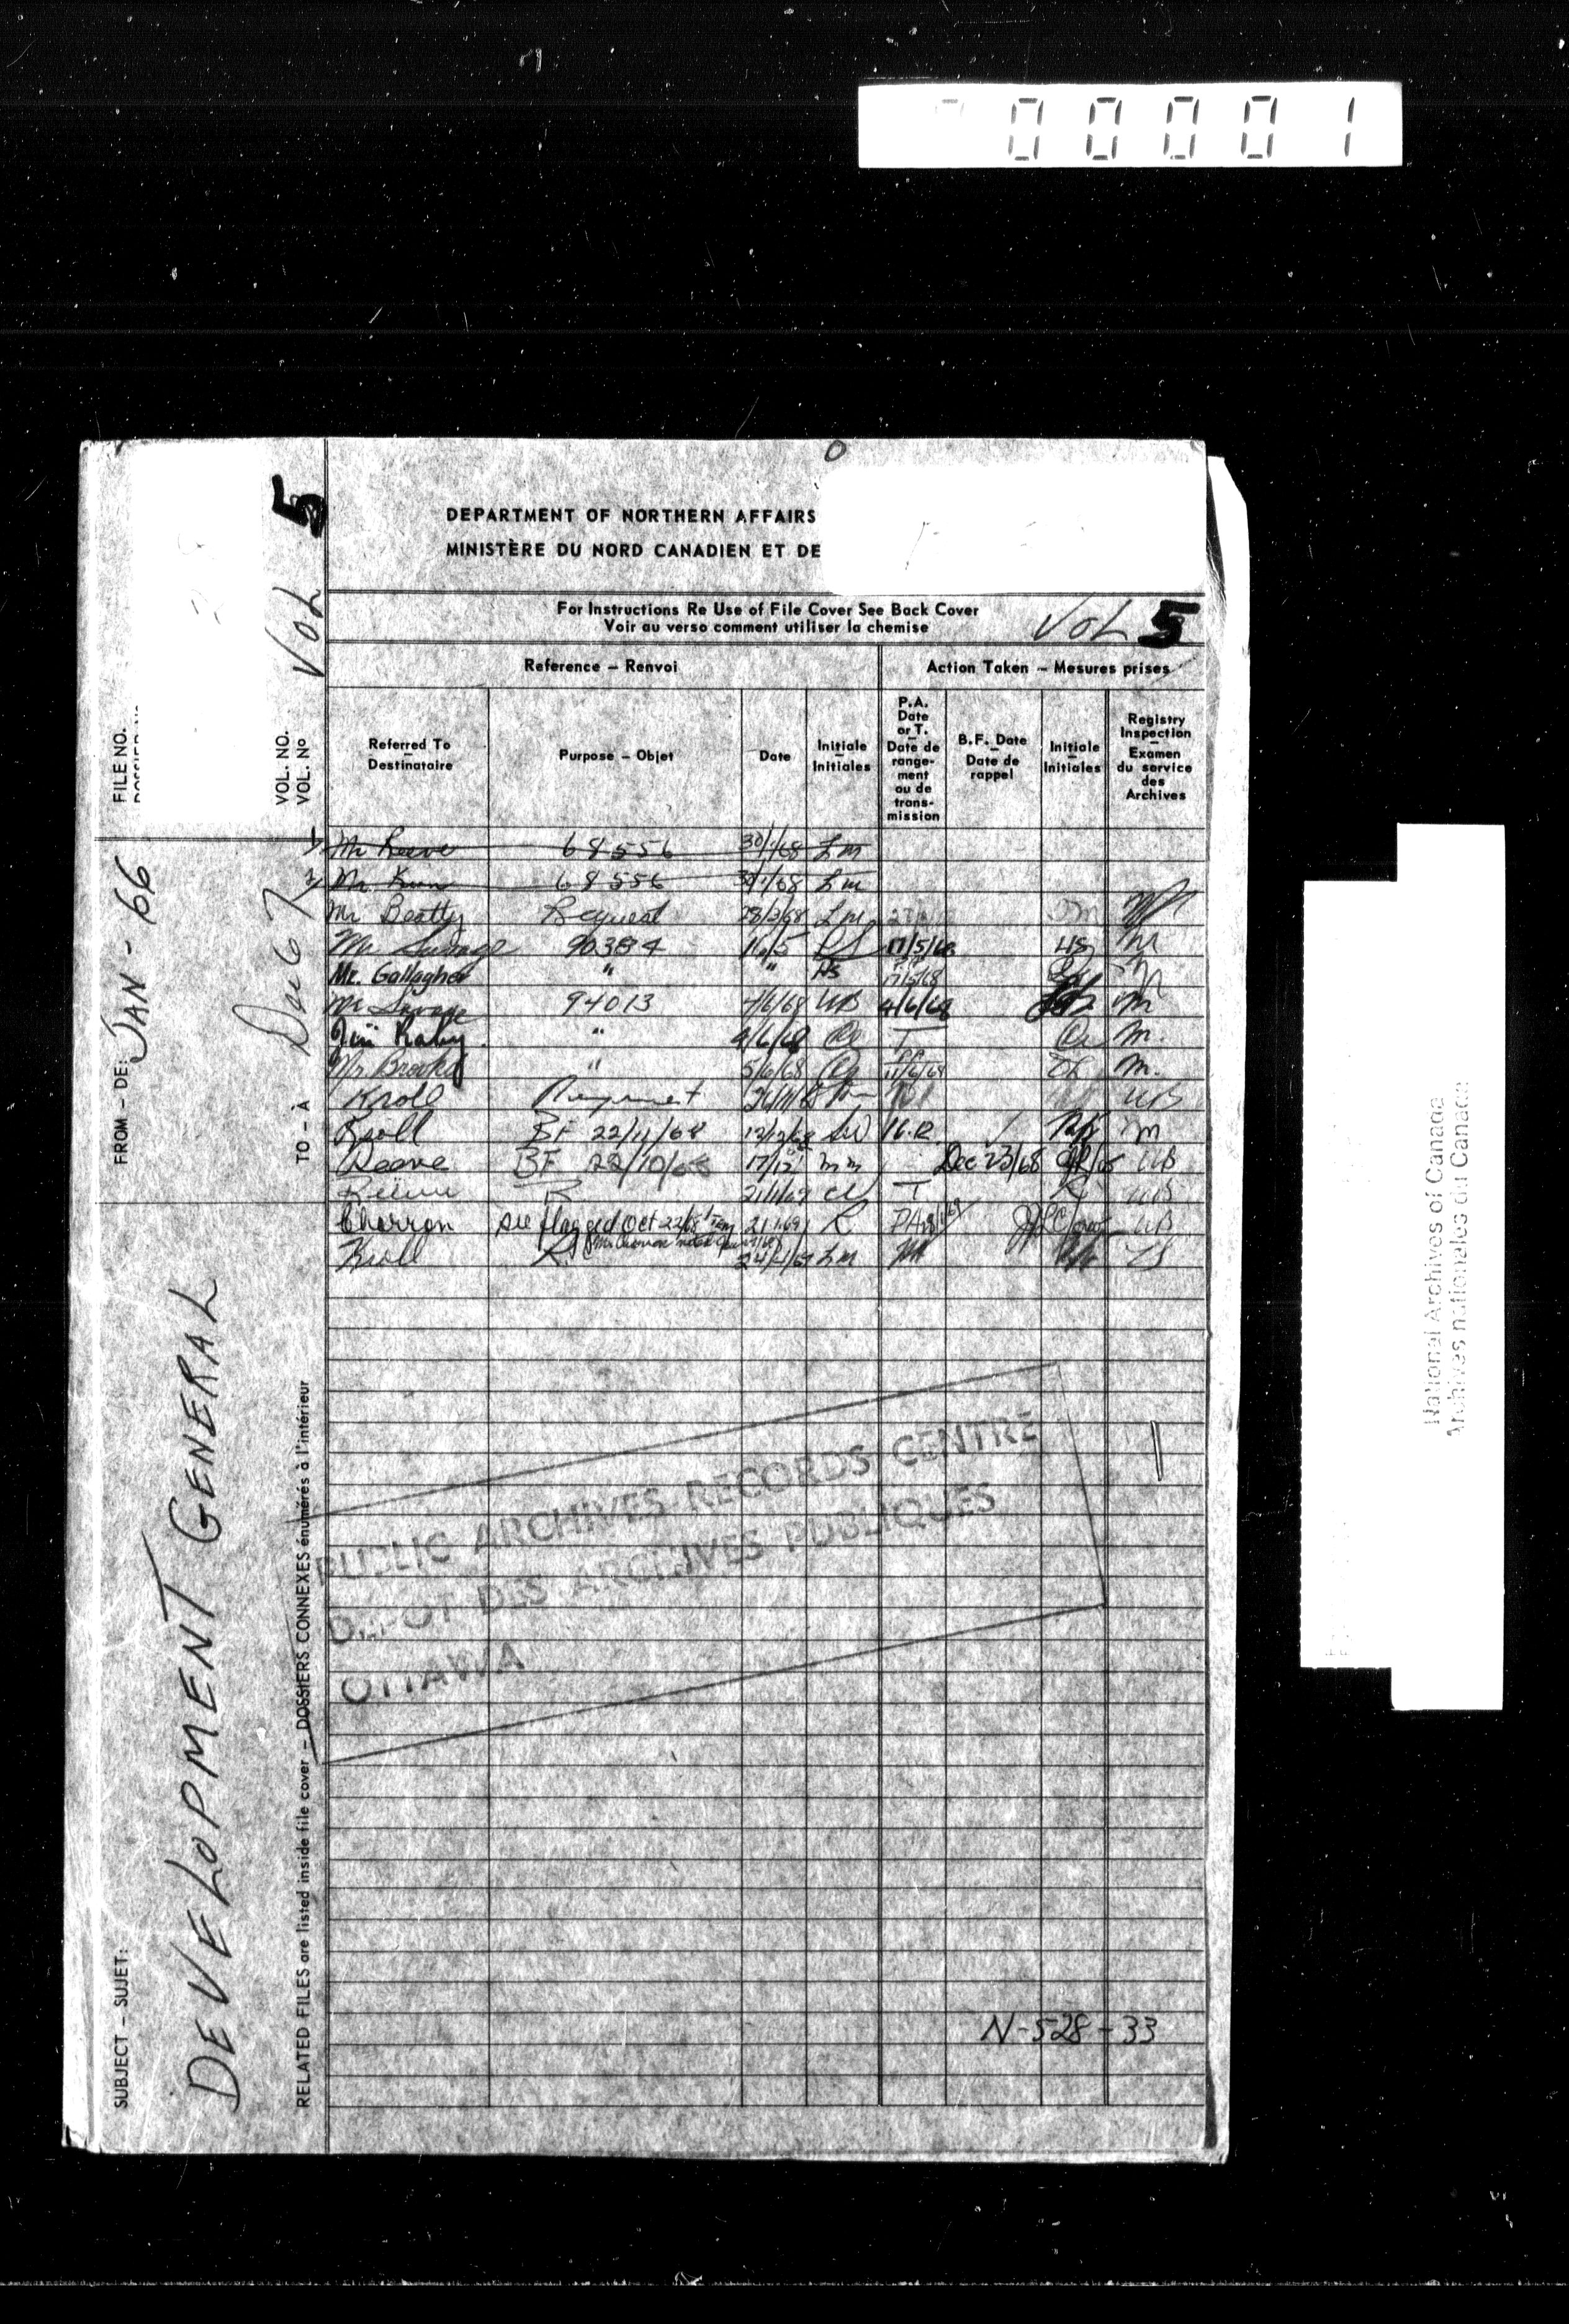 00001
DEPARTMENT OF NORTHERN AFFAIRS
MINISTÈRE DU NORD CANADIEN ET DE
For Instructions Re Use of File Cover See Back Cover
Voir au verso comment utiliser la chemise
VOL 5
Reference – Renvoi
Action Taken – Mesures prises
Referred To – Destinataire
Purpose – Objet
Date
Initiale – Initiales
P.A. Date or T. Date de range- ment ou de trans- mission
B.F. Date – Date de rappel
Initiale – Initiales
Registry Inspection – Examen du service des Archives
Mr Reeve 68556 30/1/68 Lm
Mr. 68556 30/1/68 Lm
Mr Beatty Request 28/3/68 Lm
Mr. Savage 90384 16/5 17/5/68 HS M
Mr. Gallagher " " HS 17/5/68
Mr Savage 94013 4/6/68 WB 4/6/68 M
Jim Raby. " 4/6/68 T M.
Mr. Brooks " 5/6/68 11/6/68 M.
Kroll WB
Kroll BF 22/11/68 13/12/68 M
Reeve BF 22/10/68 17/12 mm Dec 23/68 WB
R 21/1/69 T WB
Cherron see flagged Oct 22/68 21/1/69 R PA WB
Kroll R. 24/4/69 Lm
PUBLIC ARCHIVES RECORDS CENTRE
DEPOT DES ARCHIVES PUBLIQUES
OTTAWA
N-528-33
FILE NO.
VOL. NO.
VOL. Nº
VOL 5
FROM – DE: JAN - 66
TO – À Dec 67
SUBJECT – SUJET:
DEVELOPMENT GENERAL
RELATED FILES are listed inside file cover – DOSSIERS CONNEXES énumérés à l'intérieur
National Archives of Canada
Archives nationales du Canada